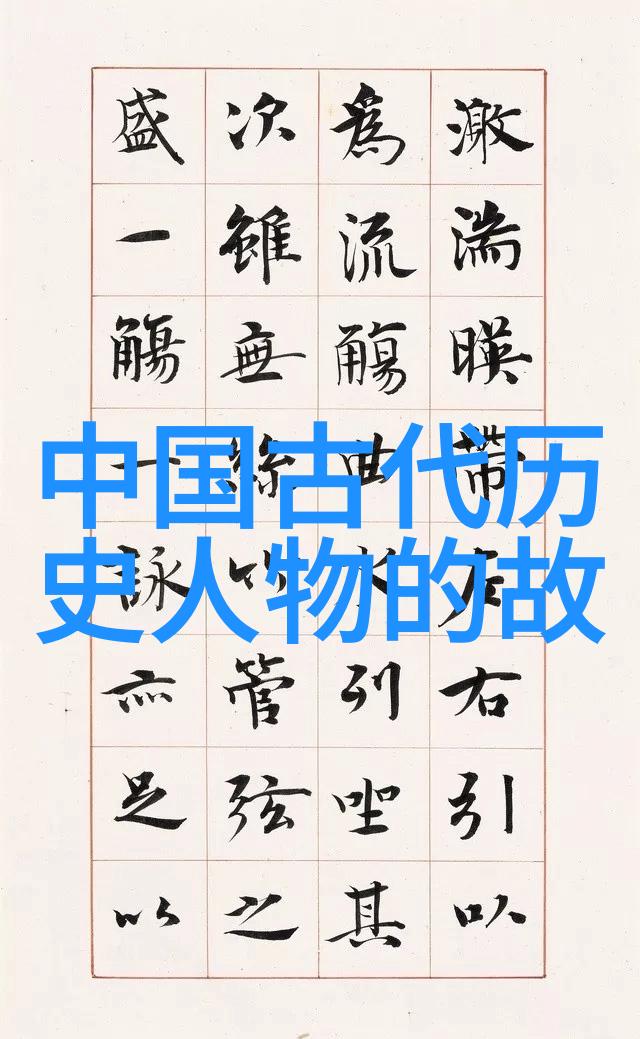 激湍暎帶左右引以
為流觴曲水列坐其
次雖無絲竹管弦之
盛一觴一詠亦足以
中国古代历
史人物的故